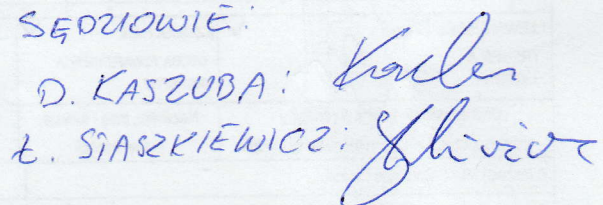 SĘDZIOWIE:
D. KASZUBA:
Ł. STASZKIEWICZ: